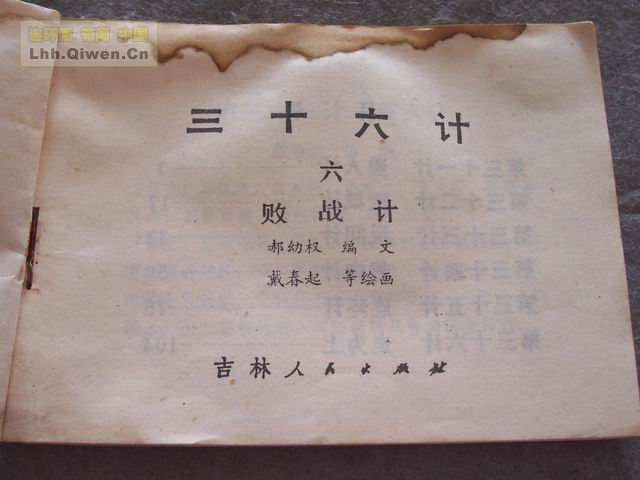 连环画·奇闻·中国
Lhh.Qiwen.Cn
三十六计
六
败战计
郝幼权 编文
戴春起 等绘画
吉林人民出版社